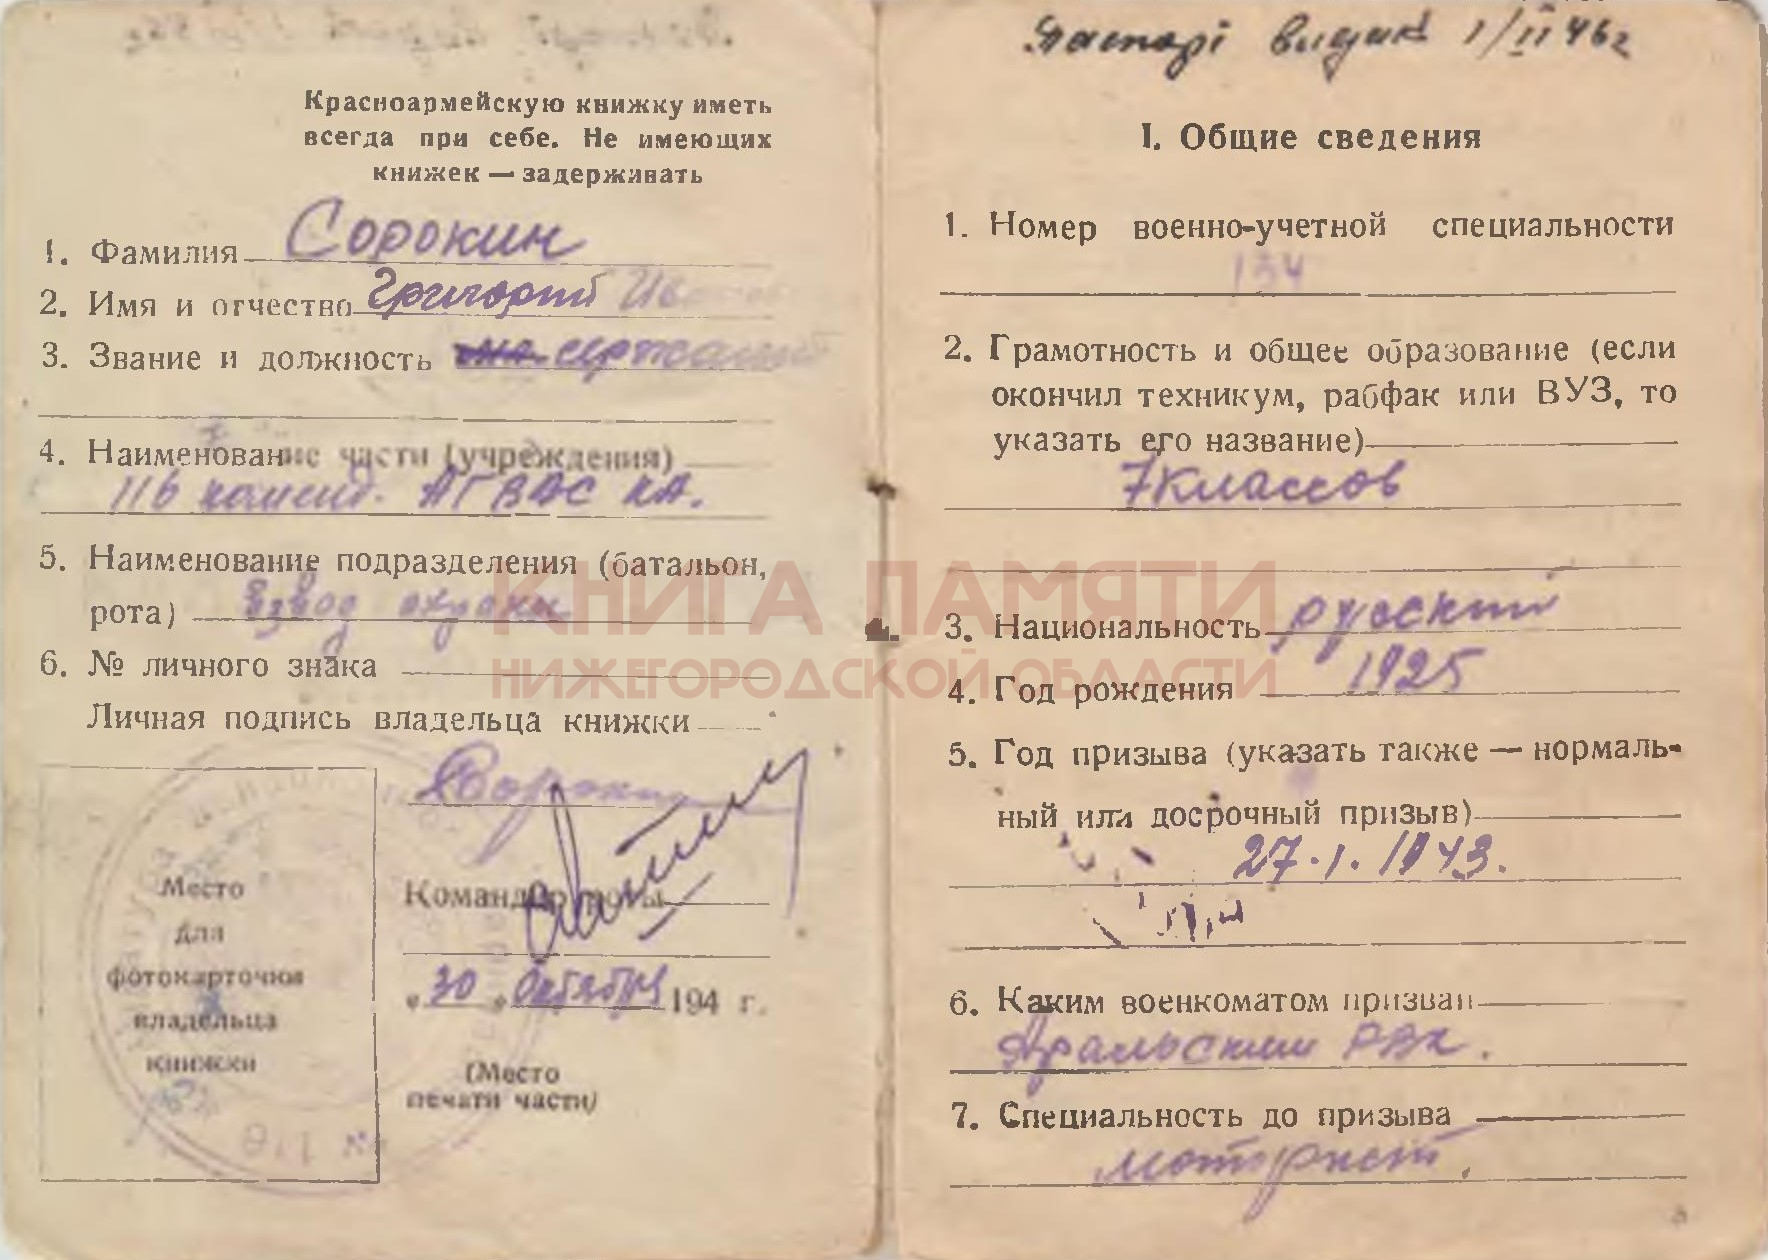 Красноармейскую книжку иметь
всегда при себе. Не имеющих
книжек — задерживать
1. Фамилия Сорокин
2. Имя и отчество Григорий
3. Звание и должность сержант
4. Наименование части (учреждения)
116 коменд. АГ ВАС КА.
5. Наименование подразделения (батальон,
рота) взвод охраны
6. № личного знака
Личная подпись владельца книжки
Сорокин
Место
для
фотокарточки
владельца
книжки
Командир роты
«30» октября 194 г.
(Место
печати части)
№ 116
Паспорт выдан 1/II 46г
I. Общие сведения
1. Номер военно-учетной специальности
134
2. Грамотность и общее образование (если
окончил техникум, рабфак или ВУЗ, то
указать его название)
7 классов
3. Национальность русский
4. Год рождения 1925
5. Год призыва (указать также — нормаль-
ный или досрочный призыв)
27.1.1943.
6. Каким военкоматом призван
Аральским РВК.
7. Специальность до призыва
моторист.
КНИГА ПАМЯТИ
НИЖЕГОРОДСКОЙ ОБЛАСТИ